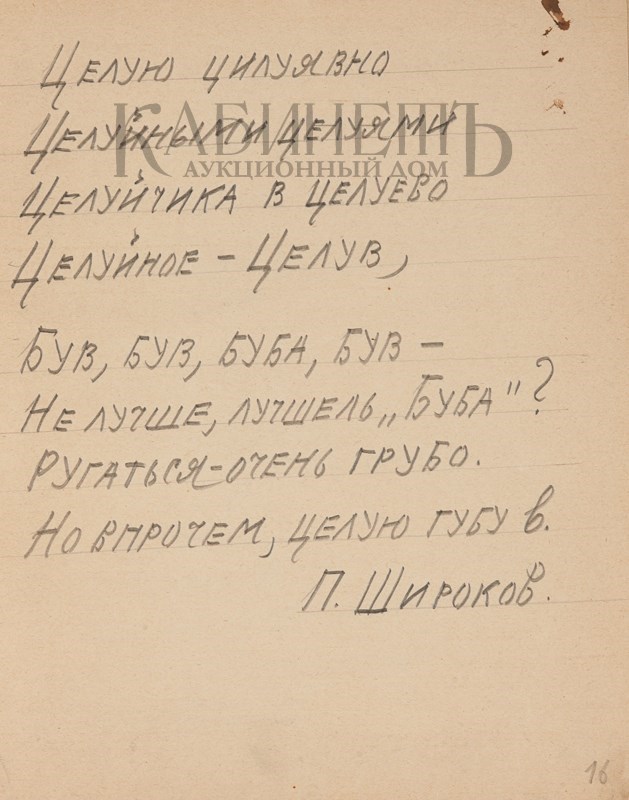 Целую цилуявно
КАБИНЕТЪ
Целуйными целуями
АУКЦИОННЫЙ ДОМ
Целуйчика в целуево
Целуйное – Целув,
Був, був, буба, був –
Не лучше, лучшель „Буба"?
Ругаться – очень грубо.
Но впрочем, целую губу в.
П. Широков.
16